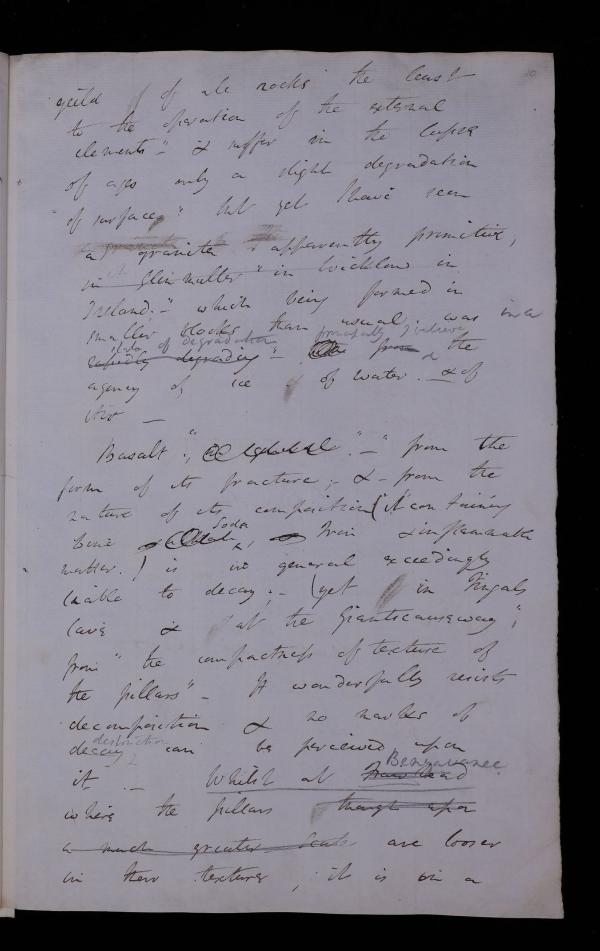 10
yield of all rocks the least
to the operation of the external
elements" - & suffer in the lapse
of ages only a slight degradation
"of surface," but yet I have seen
a granite "apparently primitive,
in Glenmaller" in Wicklow in
Ireland; - which being formed in
smaller blocks than usual; was in a
state of degradation principally I believe
rapidly degrading" - from the
agency of ice & of water. & of
Basalt "; " - " from the
form of its fracture; - & - from the
nature of its composition (it containing
Soda
lime & , & Iron & inflammable
matter.) is in general exceedingly
liable to decay; - (yet in Fingals
Cave & at the Giantscauseway";
from "the compactness of texture of
the pillars" - It wonderfully resists
decomposition & no marks of
destruction
decay can be perceived upon
Bengavanee
it. - Whilst at Fairhead
where the pillars though upon
a much greater scale are looser
in their texture, ; it is in a